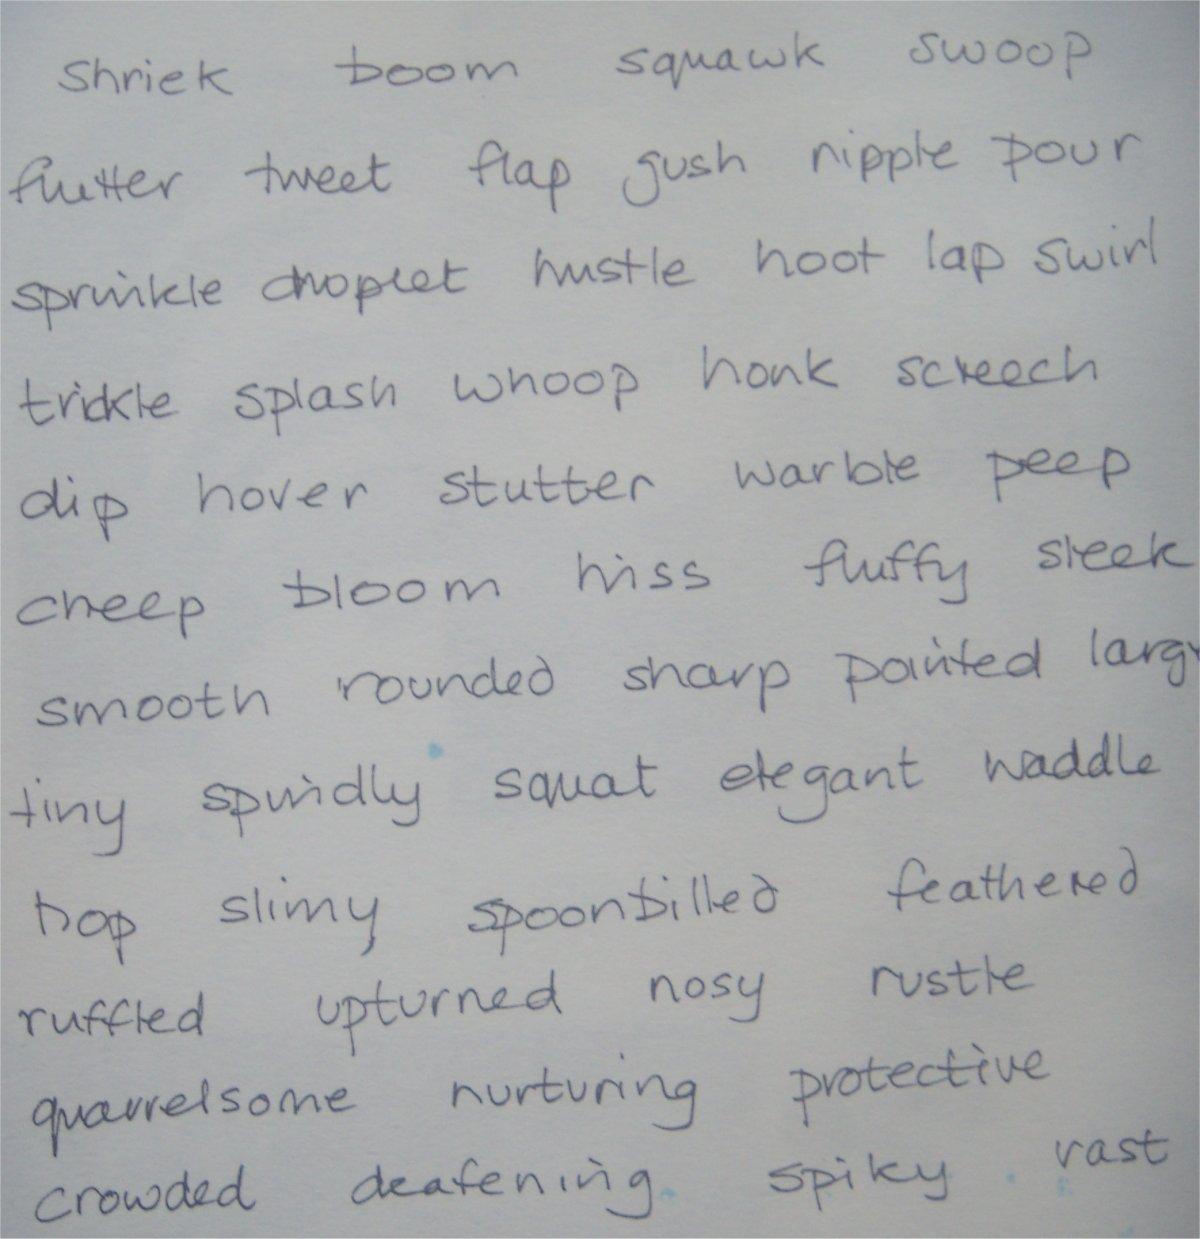 Shriek boom squawk swoop
flutter tweet flap gush ripple pour
sprinkle droplet hustle hoot lap swirl
trickle splash whoop honk screech
dip hover stutter warble peep
cheep bloom hiss fluffy sleek
smooth rounded sharp pointed large
tiny spindly squat elegant waddle
hop slimy spoonbilled feathered
ruffled upturned nosy rustle
quarrelsome nurturing protective
crowded deafening spiky vast